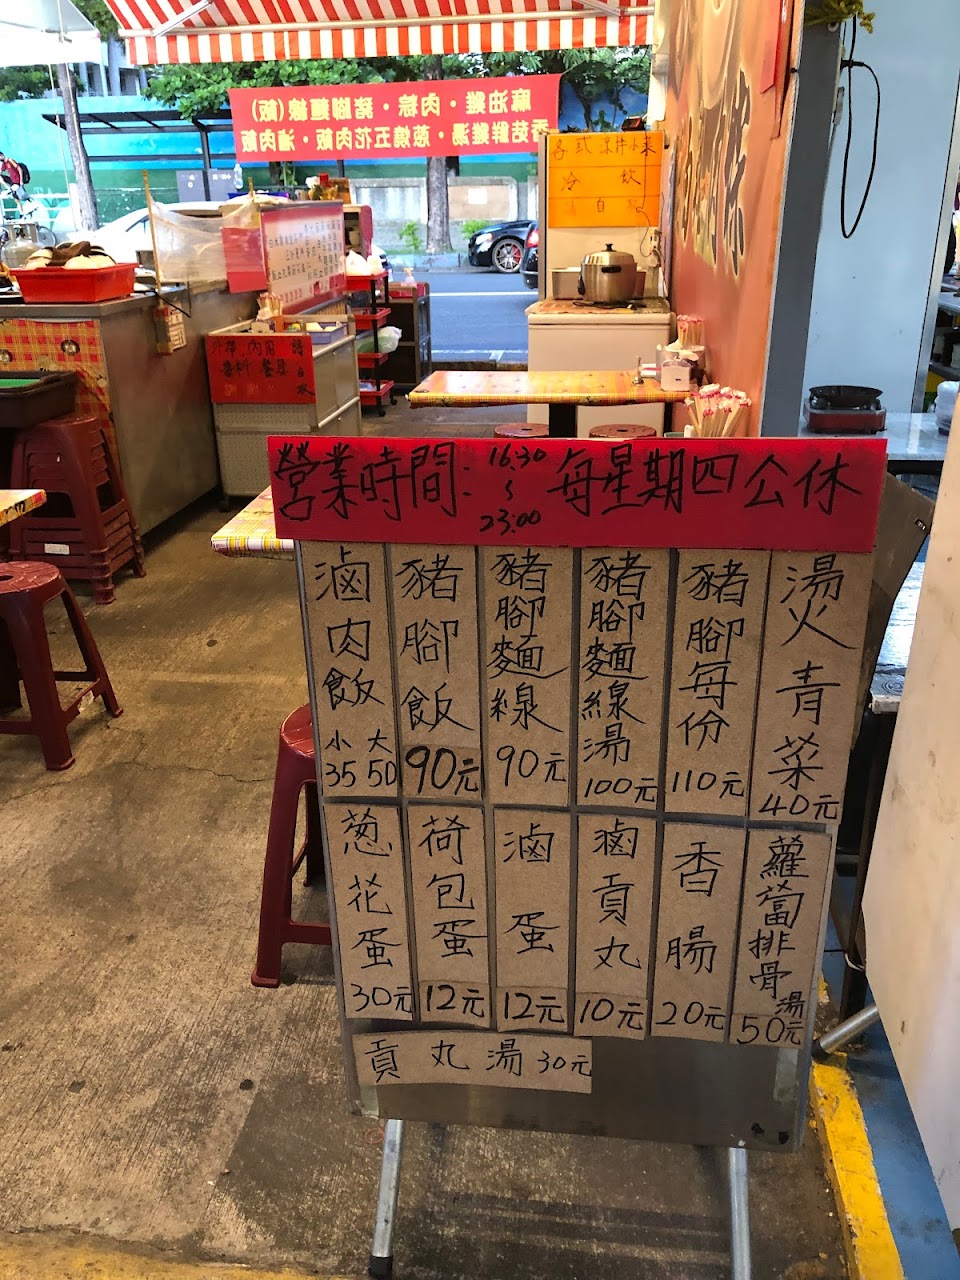 麻油雞・肉粽・豬腳麵線(飯)
香菇鮮雞湯・蔥燒五花肉飯・滷肉飯
各式滷味小菜
冷飲
自
外帶內用 請
醬料餐具 自
取
營業時間:16:30～23:00 每星期四公休
滷肉飯 小35 大50
豬腳飯 90元
豬腳麵線 90元
豬腳麵線湯 100元
豬腳每份 110元
燙青菜 40元
蔥花蛋 30元
荷包蛋 12元
滷蛋 12元
滷貢丸 10元
香腸 20元
蘿蔔排骨湯 50元
貢丸湯 30元